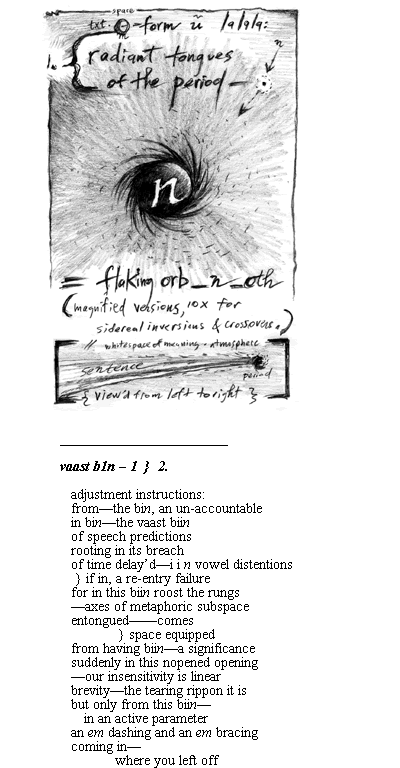 space
txt. -form ŭ 1a/9/9:
n
m
1. { radiant tongues
of the period—
n
= flaking orb_n_oth
(magnified versions, 10x for
sidereal inversions & crossovers.)
// whitespace of meaning - atmosphere
sentence
period
{ view'd from left to right }
vaast b1n – 1 } 2.
adjustment instructions:
from—the bin, an un-accountable
in bin—the vaast biin
of speech predictions
rooting in its breach
of time delay'd—i i n vowel distentions
} if in, a re-entry failure
for in this biin roost the rungs
—axes of metaphoric subspace
entongued——comes
} space equipped
from having biin—a significance
suddenly in this nopened opening
—our insensitivity is linear
brevity—the tearing rippon it is
but only from this biin—
in an active parameter
an em dashing and an em bracing
coming in—
where you left off